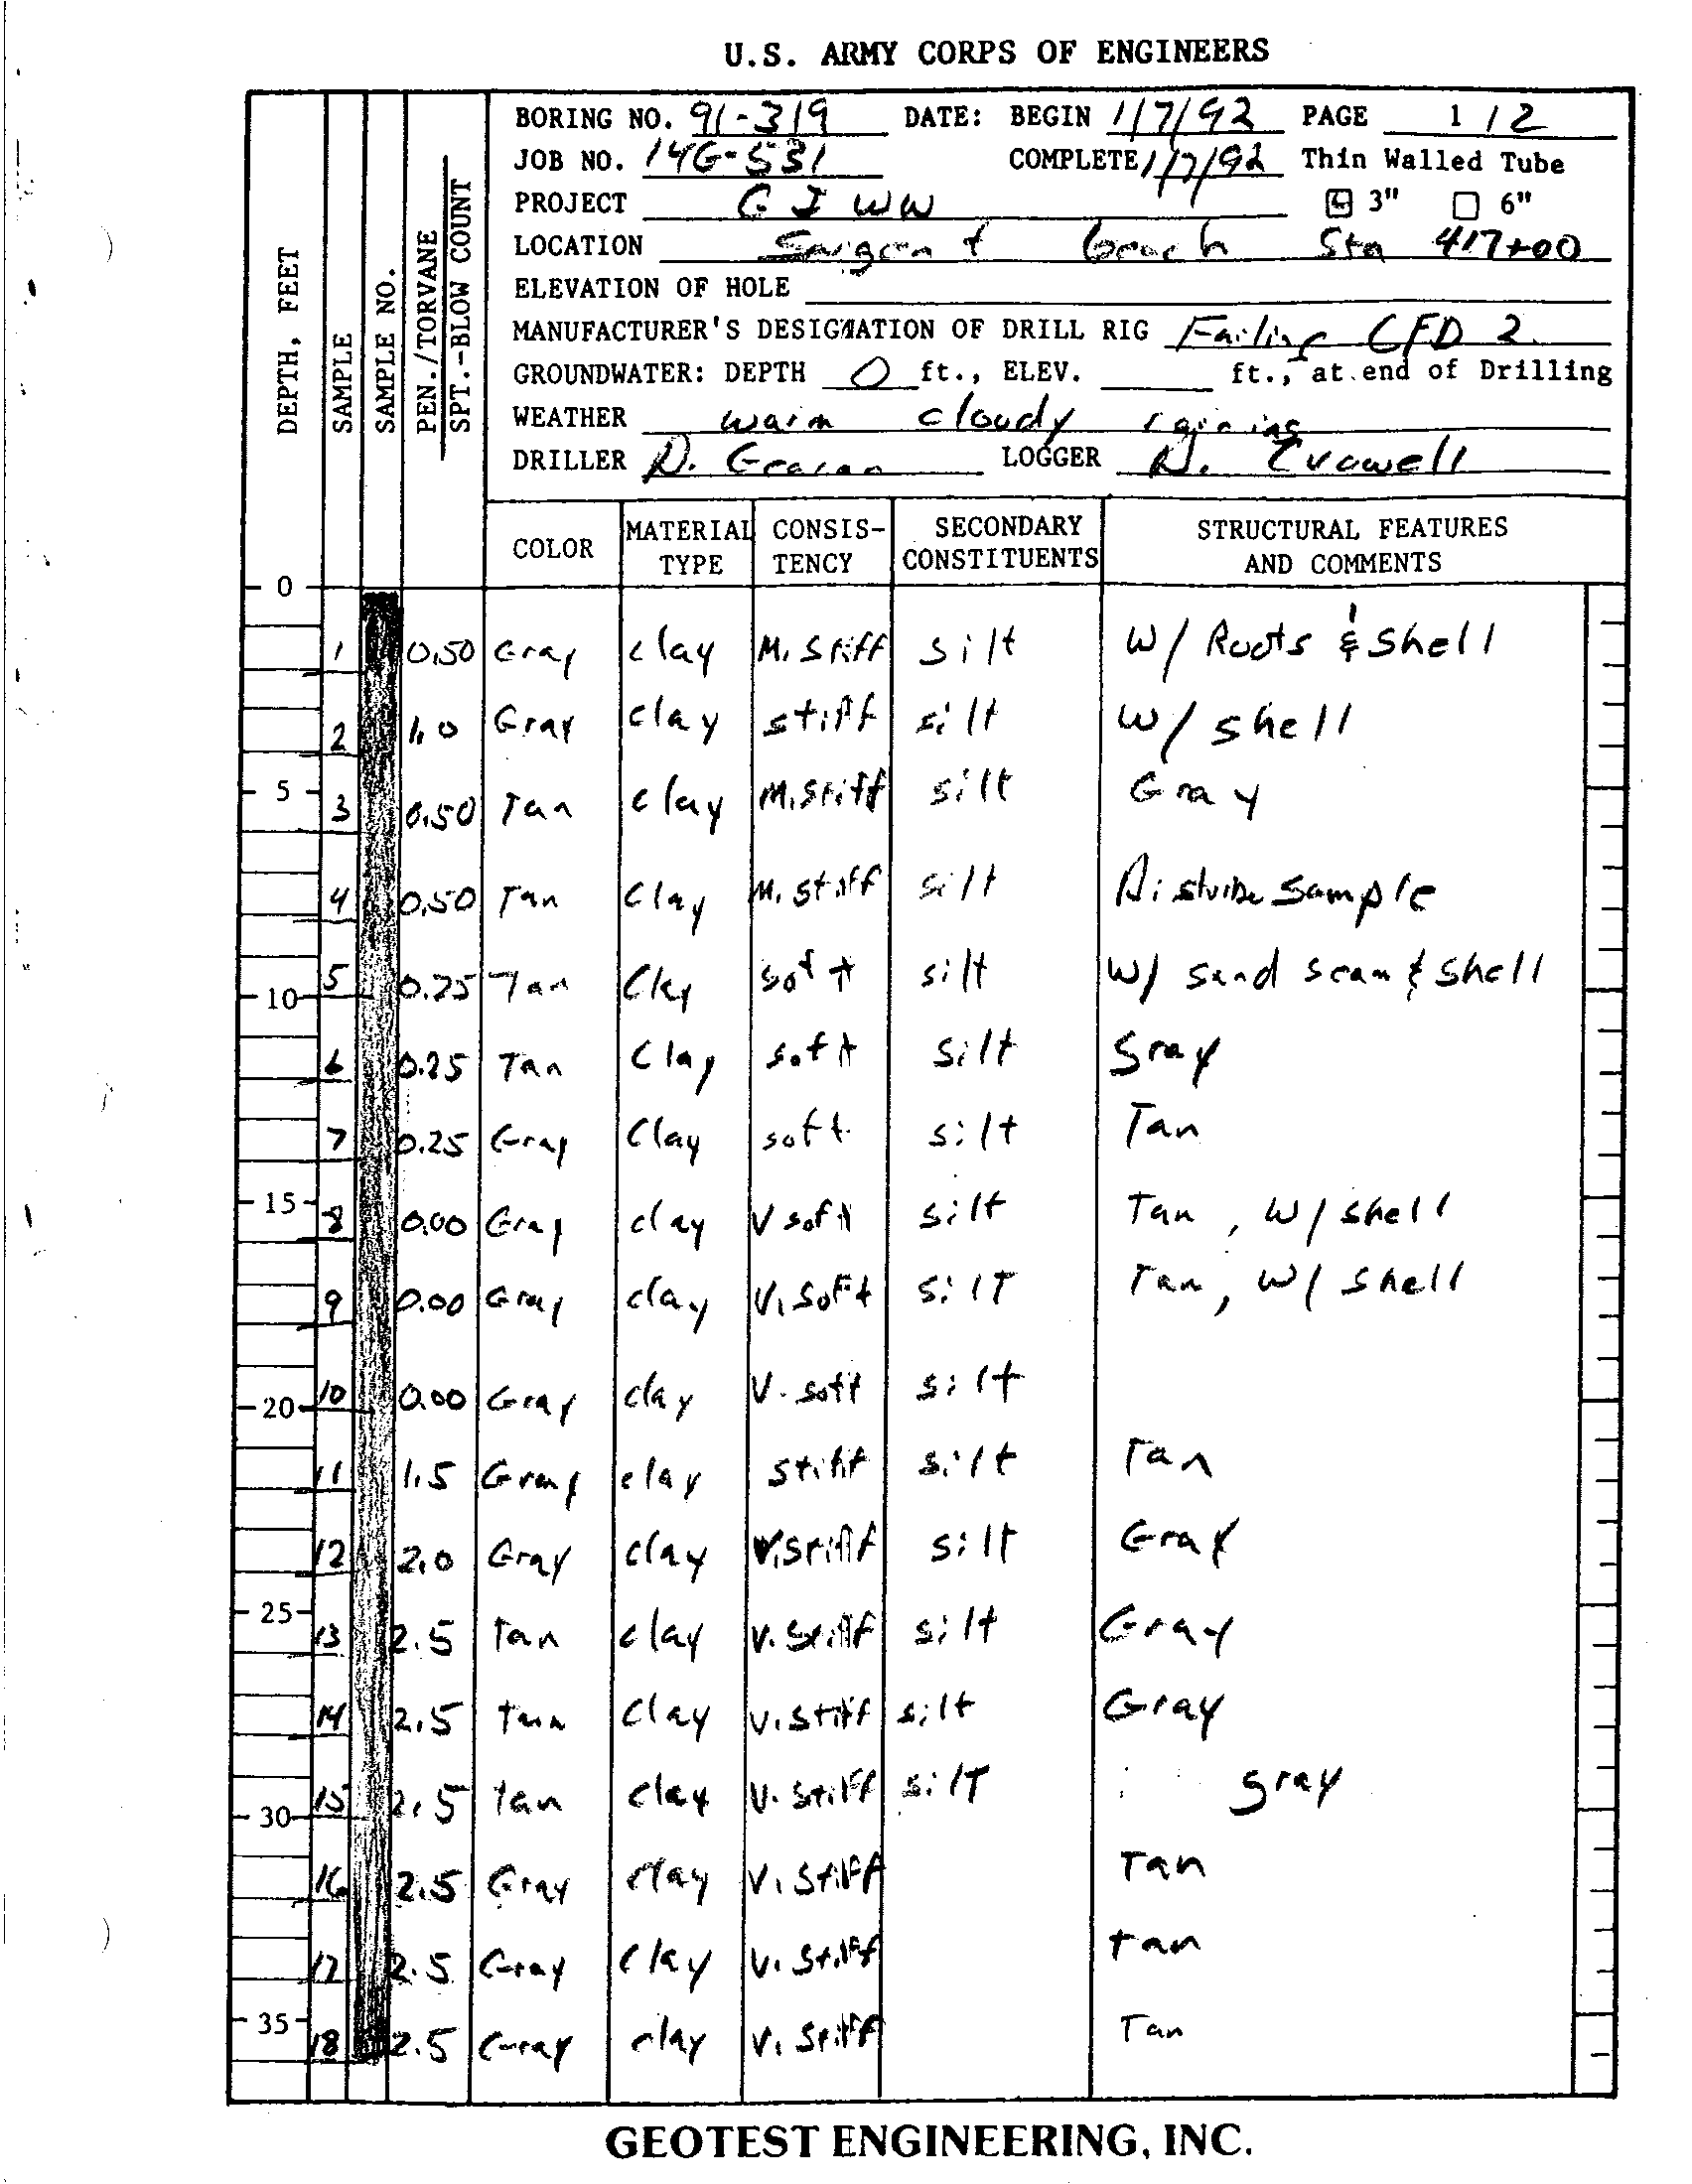 U.S. ARMY CORPS OF ENGINEERS
BORING NO. 91-319 DATE: BEGIN 1/7/92 PAGE 1 / 2
JOB NO. 14G-531 COMPLETE 1/7/92 Thin Walled Tube
PROJECT G I W W 3" 6"
LOCATION Sargent beach Sta 417+00
ELEVATION OF HOLE
MANUFACTURER'S DESIGNATION OF DRILL RIG Failing CFD 2
GROUNDWATER: DEPTH 0 ft., ELEV. ft., at end of Drilling
WEATHER warm cloudy raining
DRILLER D. LOGGER
DEPTH, FEET
SAMPLE
SAMPLE NO.
PEN./TORVANE
SPT.-BLOW COUNT
COLOR MATERIAL TYPE CONSIS-TENCY SECONDARY CONSTITUENTS STRUCTURAL FEATURES AND COMMENTS
0
1 0.50 Gray clay M. Stiff silt W/ Roots & Shell
2 1.0 Gray clay stiff silt W/ shell
5 3 0.50 Tan clay M. Stiff silt Gray
4 0.50 Tan Clay M. Stiff silt Sample
10 5 0.25 Tan Clay soft silt W/ sand seam & Shell
6 0.25 Tan Clay soft silt gray
7 0.25 Gray Clay soft silt Tan
15 8 0.00 Gray clay V soft silt Tan, W/ shell
9 0.00 Gray clay V. Soft silt Tan, W/ Shell
20 10 0.00 Gray clay V. soft silt
11 1.5 Gray clay stiff silt Tan
12 2.0 Gray clay V. Stiff silt Gray
25 13 2.5 Tan clay V. Stiff silt Gray
14 2.5 Tan Clay V. Stiff silt Gray
30 15 2.5 Tan clay V. Stiff silt gray
16 2.5 Gray clay V. Stiff Tan
17 2.5 Gray Clay V. Stiff tan
35 18 2.5 Gray clay V. Stiff Tan
GEOTEST ENGINEERING, INC.